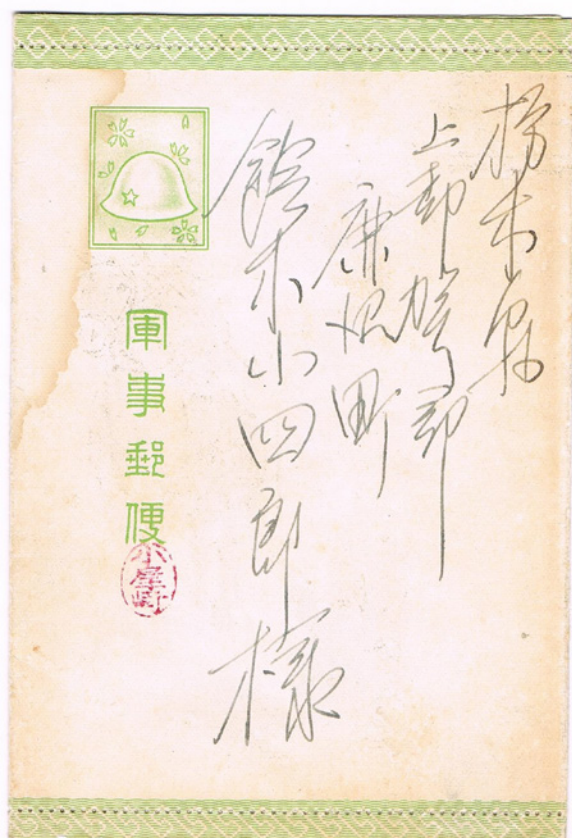 栃木縣
上都賀郡
鹿沼町
鈴木小四郎様
軍事郵便